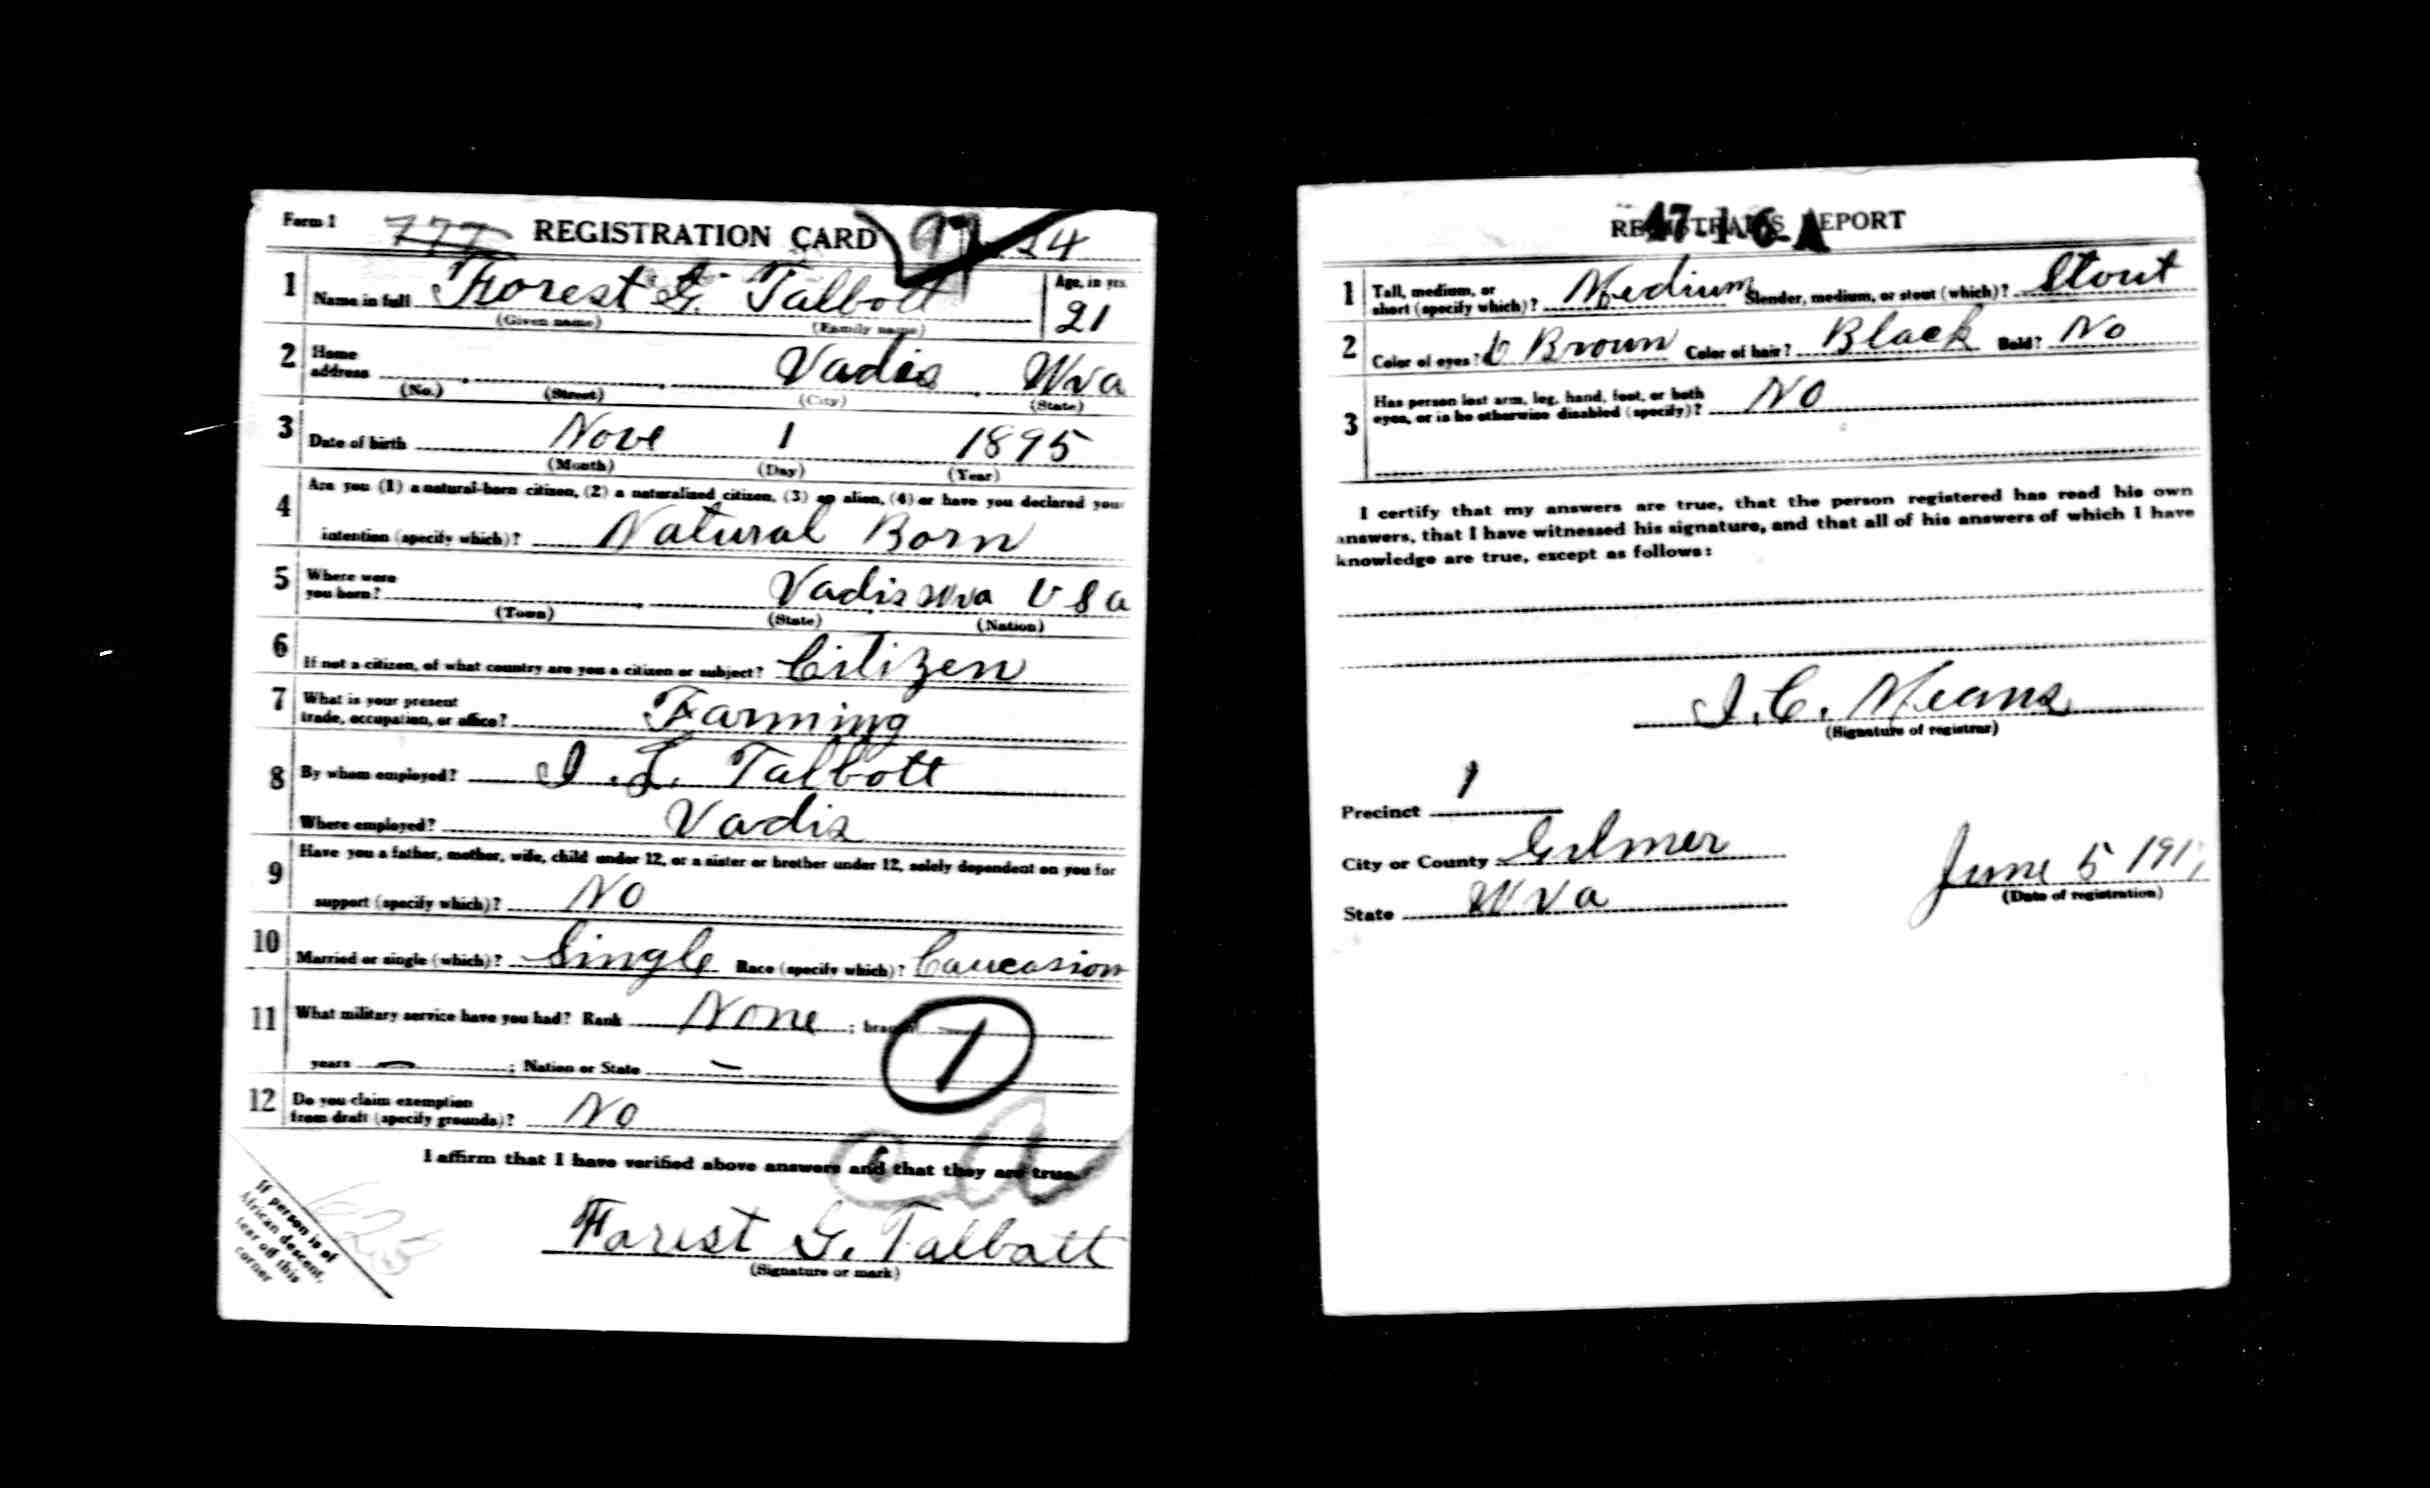 Form 1 777 REGISTRATION CARD 97 24
1 Name in full Forest G. Talbott Age, in yrs. 21
(Given name) (Family name)
2 Home address Vadis Wva
(No.) (Street) (City) (State)
3 Date of birth Nove 1 1895
(Month) (Day) (Year)
4 Are you (1) a natural-born citizen, (2) a naturalized citizen, (3) an alien, (4) or have you declared your
intention (specify which)? Natural Born
5 Where were you born? Vadis Wva U S a
(Town) (State) (Nation)
6 If not a citizen, of what country are you a citizen or subject? Citizen
7 What is your present trade, occupation, or office? Farming
8 By whom employed? I. L. Talbott
Where employed? Vadis
9 Have you a father, mother, wife, child under 12, or a sister or brother under 12, solely dependent on you for
support (specify which)? No
10 Married or single (which)? Single Race (specify which)? Caucasion
11 What military service have you had? Rank None ; branch
years — ; Nation or State —
1
12 Do you claim exemption from draft (specify grounds)? No
I affirm that I have verified above answers and that they are true.
Forest G. Talbott
(Signature or mark)
If person is of
African descent,
tear off this
corner
REGISTRAR'S REPORT
47-1-6-A
1 Tall, medium, or short (specify which)? Medium Slender, medium, or stout (which)? Stout
2 Color of eyes? Brown Color of hair? Black Bald? No
3 Has person lost arm, leg, hand, foot, or both
eyes, or is he otherwise disabled (specify)? No
I certify that my answers are true, that the person registered has read his own
answers, that I have witnessed his signature, and that all of his answers of which I have
knowledge are true, except as follows:
I. C. Means
(Signature of registrar)
Precinct 1
City or County Gilmer
State W Va
June 5 1917
(Date of registration)